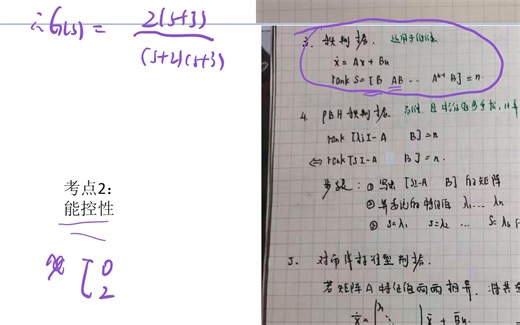 ∴G(s) = 2(s+3) / (s+2)(s+3)
考点2:
能控性
[0
2
3. 秩判据. 适用于
ẋ = Ax + Bu
rank S = [B AB ... Aⁿ⁻¹ B] = n.
4. PBH 秩判据
rank [λiI-A B] = n
⇔ rank [sI-A B] = n.
步骤: ① 写出 [sI-A B] 的矩阵
② 特征值 λ₁ ... λn
③ s=λ₁ s=λ₂ ... s=λ₃
5. 对角线标准型判据.
若矩阵A特征值两两相异.